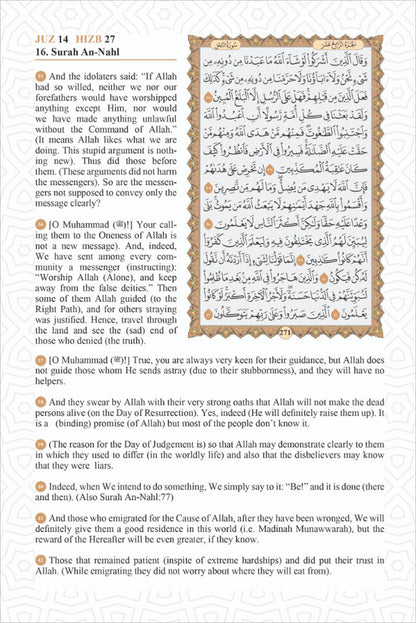 JUZ 14 HIZB 27
16. Surah An-Nahl
35 And the idolaters said: “If Allah
had so willed, neither we nor our
forefathers would have worshipped
anything except Him, nor would
we have made anything unlawful
without the Command of Allah.”
(It means Allah likes what we are
doing. This stupid argument is noth-
ing new). Thus did those before
them. (These arguments did not harm
the messengers). So are the messen-
gers not supposed to convey only the
message clearly?
36 [O Muhammad (ﷺ)!] Your call-
ing them to the Oneness of Allah is
not a new message). And, indeed,
We have sent among every com-
munity a messenger (instructing):
“Worship Allah (Alone), and keep
away from the false deities.” Then
some of them Allah guided (to the
Right Path), and for others straying
was justified. Hence, travel through
the land and see the (sad) end of
those who denied (the truth).
الجزء الرابع عشر
سورة النحل
وَقَالَ الَّذِينَ أَشْرَكُوا لَوْ شَاءَ اللَّهُ مَا عَبَدْنَا مِن دُونِهِ مِن
شَيْءٍ نَّحْنُ وَلَا آبَاؤُنَا وَلَا حَرَّمْنَا مِن دُونِهِ مِن شَيْءٍ كَذَٰلِكَ
فَعَلَ الَّذِينَ مِن قَبْلِهِمْ فَهَلْ عَلَى الرُّسُلِ إِلَّا الْبَلَاغُ الْمُبِينُ
وَلَقَدْ بَعَثْنَا فِي كُلِّ أُمَّةٍ رَّسُولًا أَنِ اعْبُدُوا اللَّهَ
وَاجْتَنِبُوا الطَّاغُوتَ فَمِنْهُم مَّنْ هَدَى اللَّهُ وَمِنْهُم مَّنْ
حَقَّتْ عَلَيْهِ الضَّلَالَةُ فَسِيرُوا فِي الْأَرْضِ فَانظُرُوا كَيْفَ
كَانَ عَاقِبَةُ الْمُكَذِّبِينَ إِن تَحْرِصْ عَلَىٰ هُدَاهُمْ
فَإِنَّ اللَّهَ لَا يَهْدِي مَن يُضِلُّ وَمَا لَهُم مِّن نَّاصِرِينَ
وَأَقْسَمُوا بِاللَّهِ جَهْدَ أَيْمَانِهِمْ لَا يَبْعَثُ اللَّهُ مَن يَمُوتُ بَلَىٰ
وَعْدًا عَلَيْهِ حَقًّا وَلَٰكِنَّ أَكْثَرَ النَّاسِ لَا يَعْلَمُونَ
لِيُبَيِّنَ لَهُمُ الَّذِي يَخْتَلِفُونَ فِيهِ وَلِيَعْلَمَ الَّذِينَ كَفَرُوا
أَنَّهُمْ كَانُوا كَاذِبِينَ إِنَّمَا قَوْلُنَا لِشَيْءٍ إِذَا أَرَدْنَاهُ أَن نَّقُولَ
لَهُ كُن فَيَكُونُ وَالَّذِينَ هَاجَرُوا فِي اللَّهِ مِن بَعْدِ مَا ظُلِمُوا
لَنُبَوِّئَنَّهُمْ فِي الدُّنْيَا حَسَنَةً وَلَأَجْرُ الْآخِرَةِ أَكْبَرُ لَوْ كَانُوا
يَعْلَمُونَ الَّذِينَ صَبَرُوا وَعَلَىٰ رَبِّهِمْ يَتَوَكَّلُونَ
271
37 [O Muhammad (ﷺ)!] True, you are always very keen for their guidance, but Allah does
not guide those whom He sends astray (due to their stubbornness), and they will have no
helpers.
38 And they swear by Allah with their very strong oaths that Allah will not make the dead
persons alive (on the Day of Resurrection). Yes, indeed (He will definitely raise them up). It
is a (binding) promise (of Allah) but most of the people don’t know it.
39 (The reason for the Day of Judgement is) so that Allah may demonstrate clearly to them
in which they used to differ (in the worldly life) and also that the disbelievers may know
that they were liars.
40 Indeed, when We intend to do something, We simply say to it: “Be!” and it is done (there
and then). (Also Surah An-Nahl:77)
41 And those who emigrated for the Cause of Allah, after they have been wronged, We will
definitely give them a good residence in this world (i.e. Madinah Munawwarah), but the
reward of the Hereafter will be even greater, if they know.
42 Those that remained patient (inspite of extreme hardships) and did put their trust in
Allah. (While emigrating they did not worry about where they will eat from).